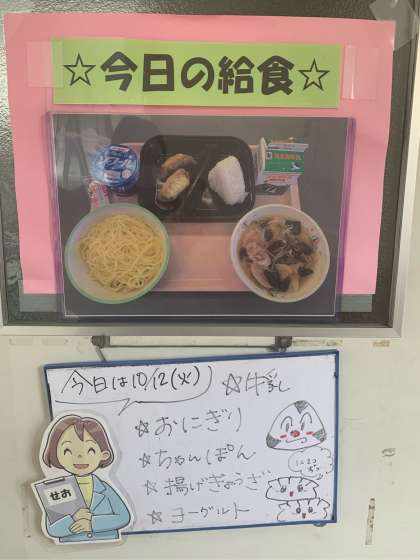 ☆今日の給食☆
今日は10/12(火)
☆牛乳
☆おにぎり
☆ちゃんぽん
☆揚げぎょうざ
☆ヨーグルト
せお